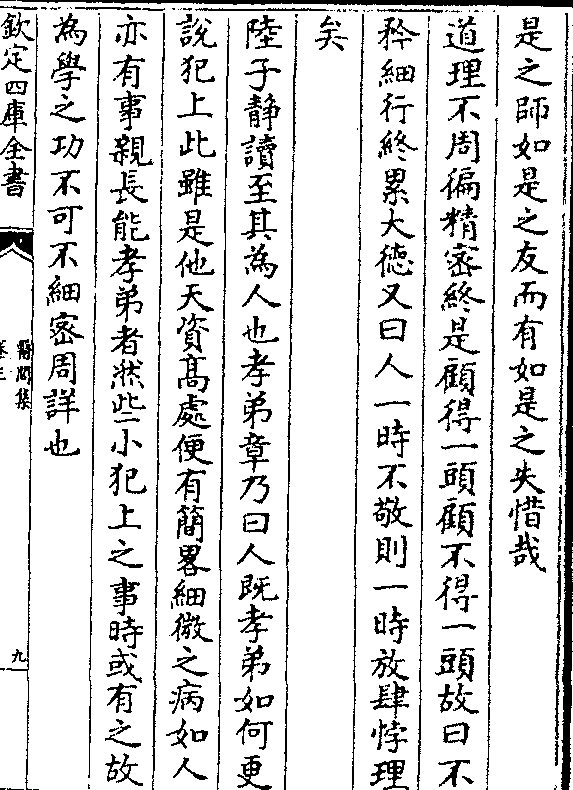 是之師如是之友而有如是之失惜哉
道理不周徧精宻終是顧得一頭顧不得一頭故曰不
矜細行終累大徳又曰人一時不敬則一時放肆悖理
矣
陸子静讀至其為人也孝弟章乃曰人既孝弟如何更
說犯上此雖是他天資髙處便有簡畧細微之病如人
亦有事親長能孝弟者然些小犯上之事時或有之故
為學之功不可不細宻周詳也
欽定四庫全書
醫閭集
卷三
九